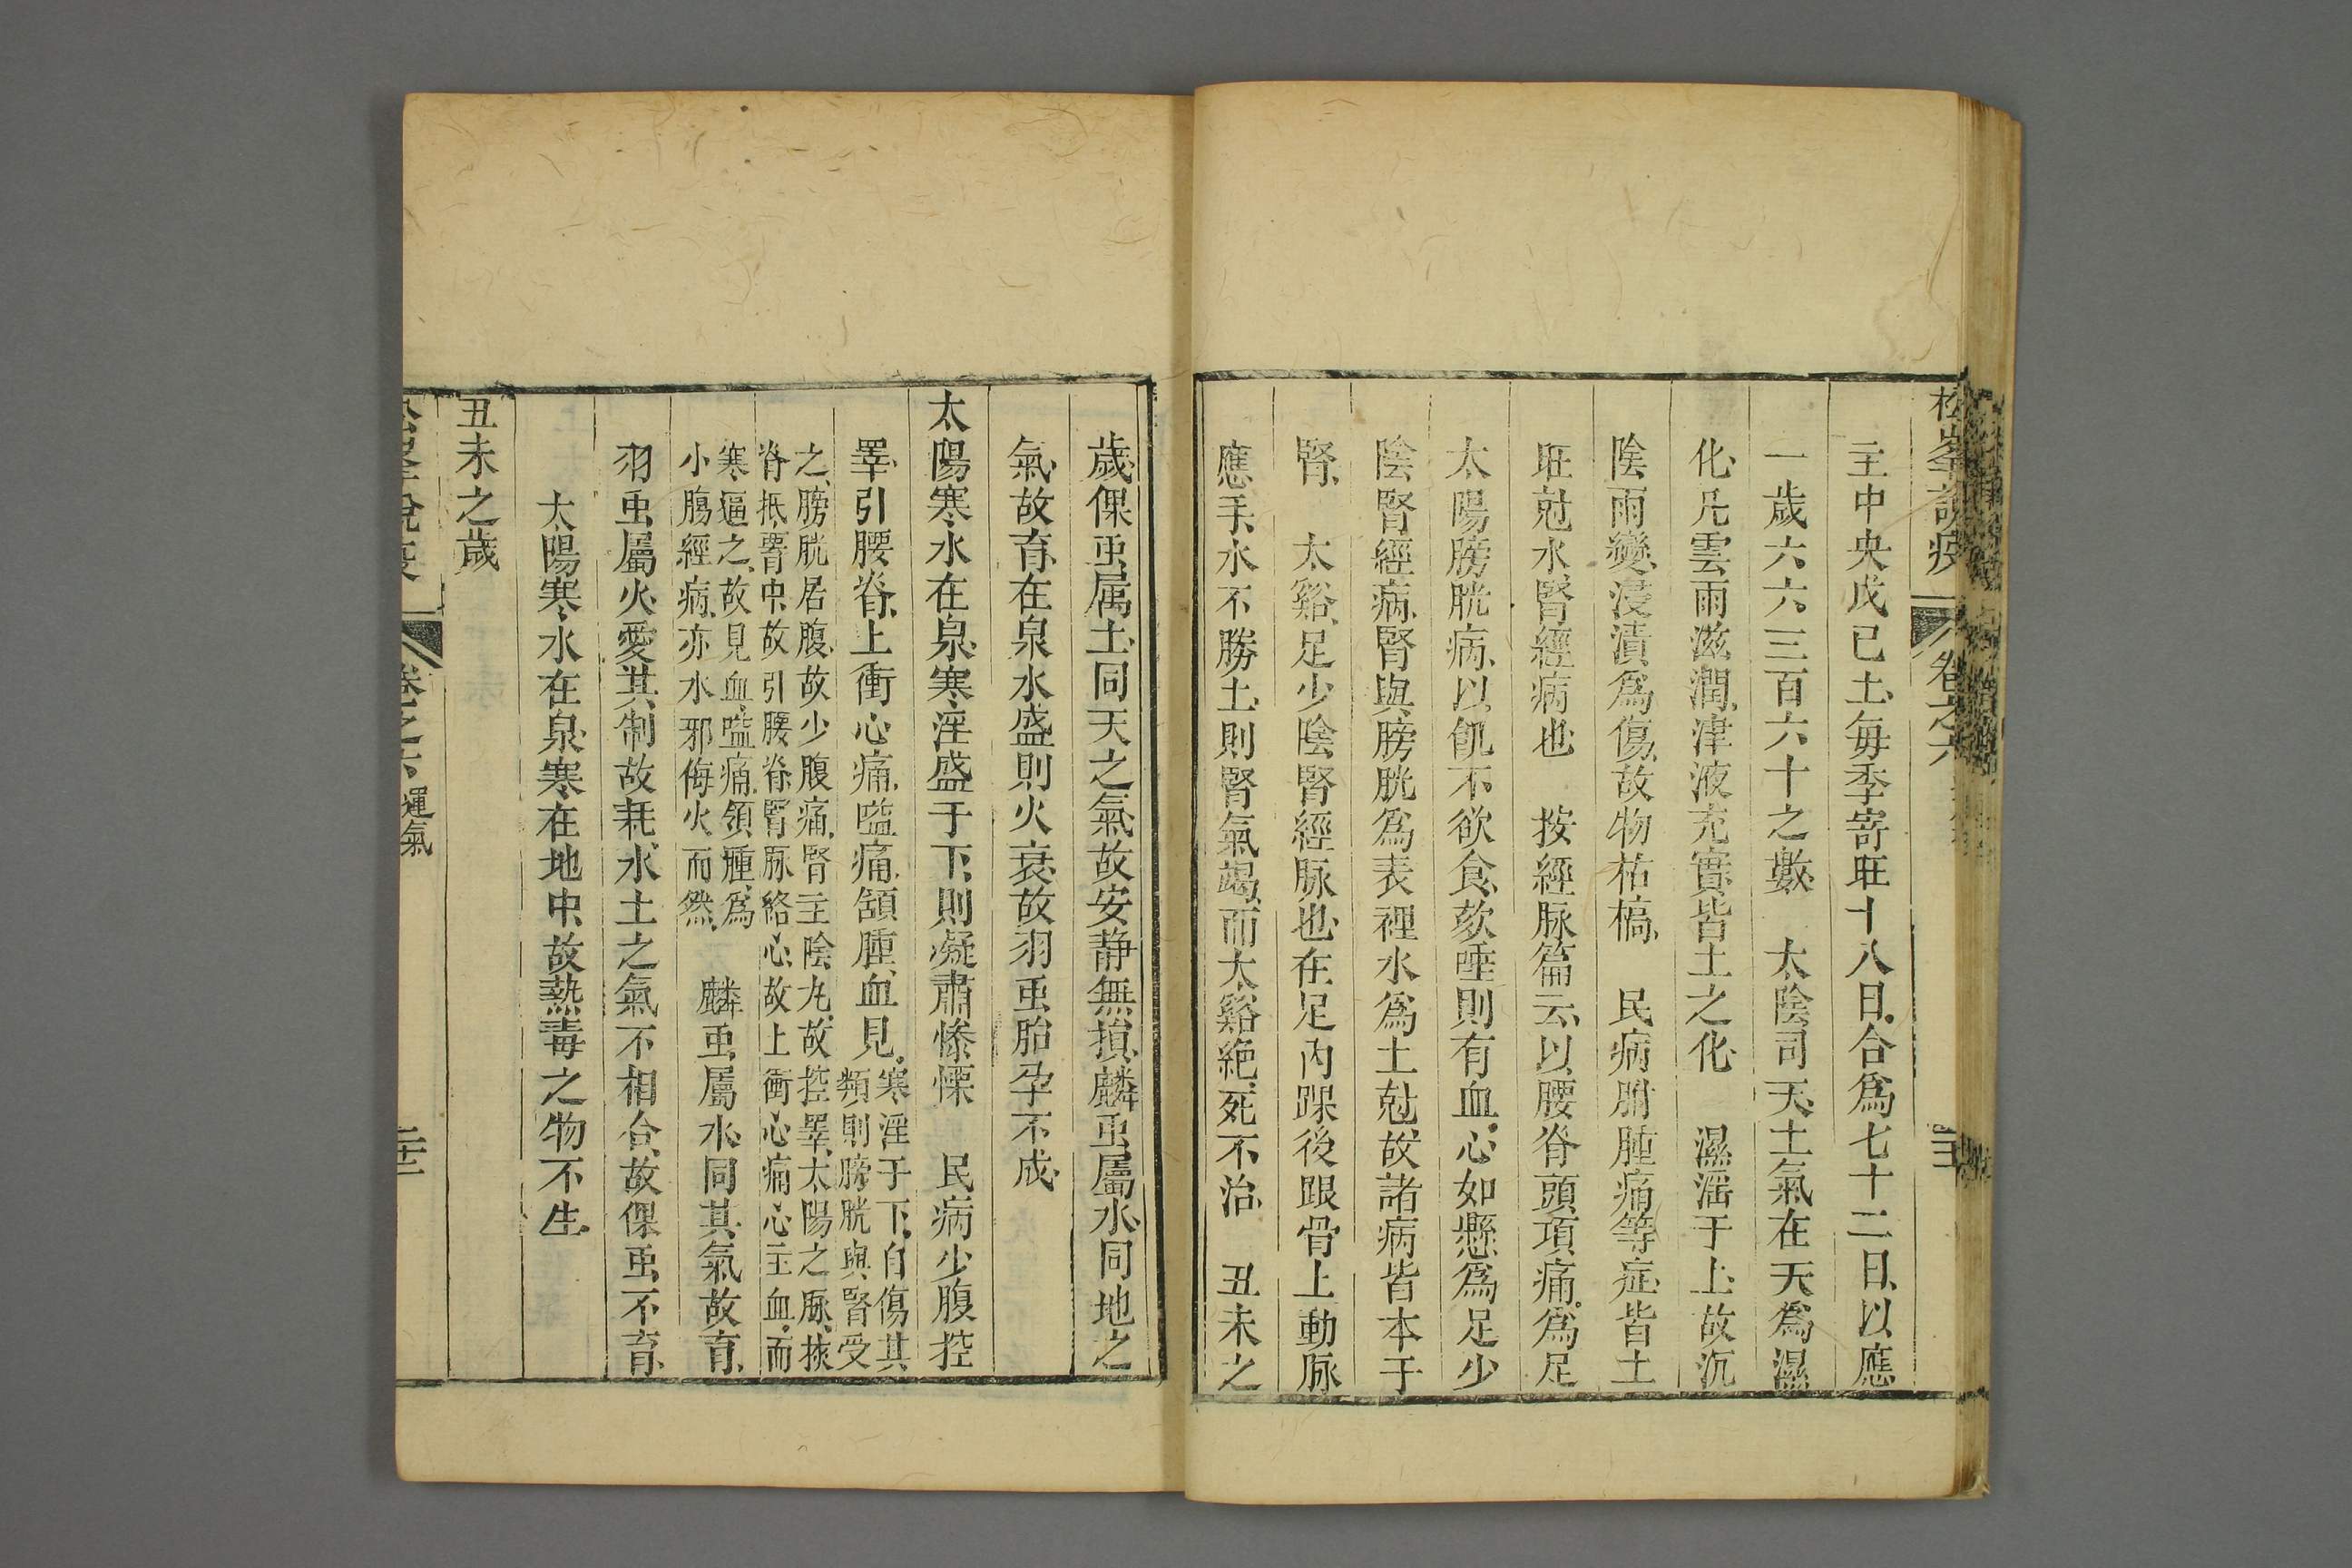 松峯說疫
卷之六
主中央戊己土、每季寄旺十八日、合爲七十二日、以應
一歲六六三百六十之數、 太陰司天、土氣在天爲濕
化、凡雲雨滋潤、津液充實、皆土之化、 濕淫于上、故沉
陰雨變、浸漬爲傷、故物枯槁、 民病胕腫痛等症、皆土
旺尅水腎經病也 按經脉篇云、以腰脊頭項痛、爲足
太陽膀胱病、以飢不欲食、欬唾則有血、心如懸、爲足少
陰腎經病、腎與膀胱爲表裡、水爲土尅、故諸病皆本于
腎、 太谿、足少陰腎經脉也、在足內踝後跟骨上動脉
應手、水不勝土、則腎氣竭、而太谿絶、死不治、 丑未之
歲、倮䖝屬土、同天之氣、故安静無損、麟䖝屬水、同地之
氣、故育、在泉水盛則火衰、故羽䖝胎孕不成、
太陽寒水在泉、寒淫盛于下、則凝肅慘慄 民病少腹控
睪、引腰脊、上衝心痛、嗌痛、頷腫、血見、寒淫于下、自傷其
類、則膀胱與腎受
之、膀胱居腹、故少腹痛、腎主陰丸、故控睪、太陽之脉、挾
脊抵腎中、故引腰脊、腎脉絡心、故上衝心痛、心主血、而
寒逼之、故見血、嗌痛、頷腫、爲
小腸經病、亦水邪侮火而然、 麟䖝屬水、同其氣、故育、
羽䖝屬火、愛其制、故耗、水土之氣不相合、故倮䖝不育、
太陽寒水在泉、寒在地中、故熱毒之物不生、
丑未之歲
卷之六
運氣